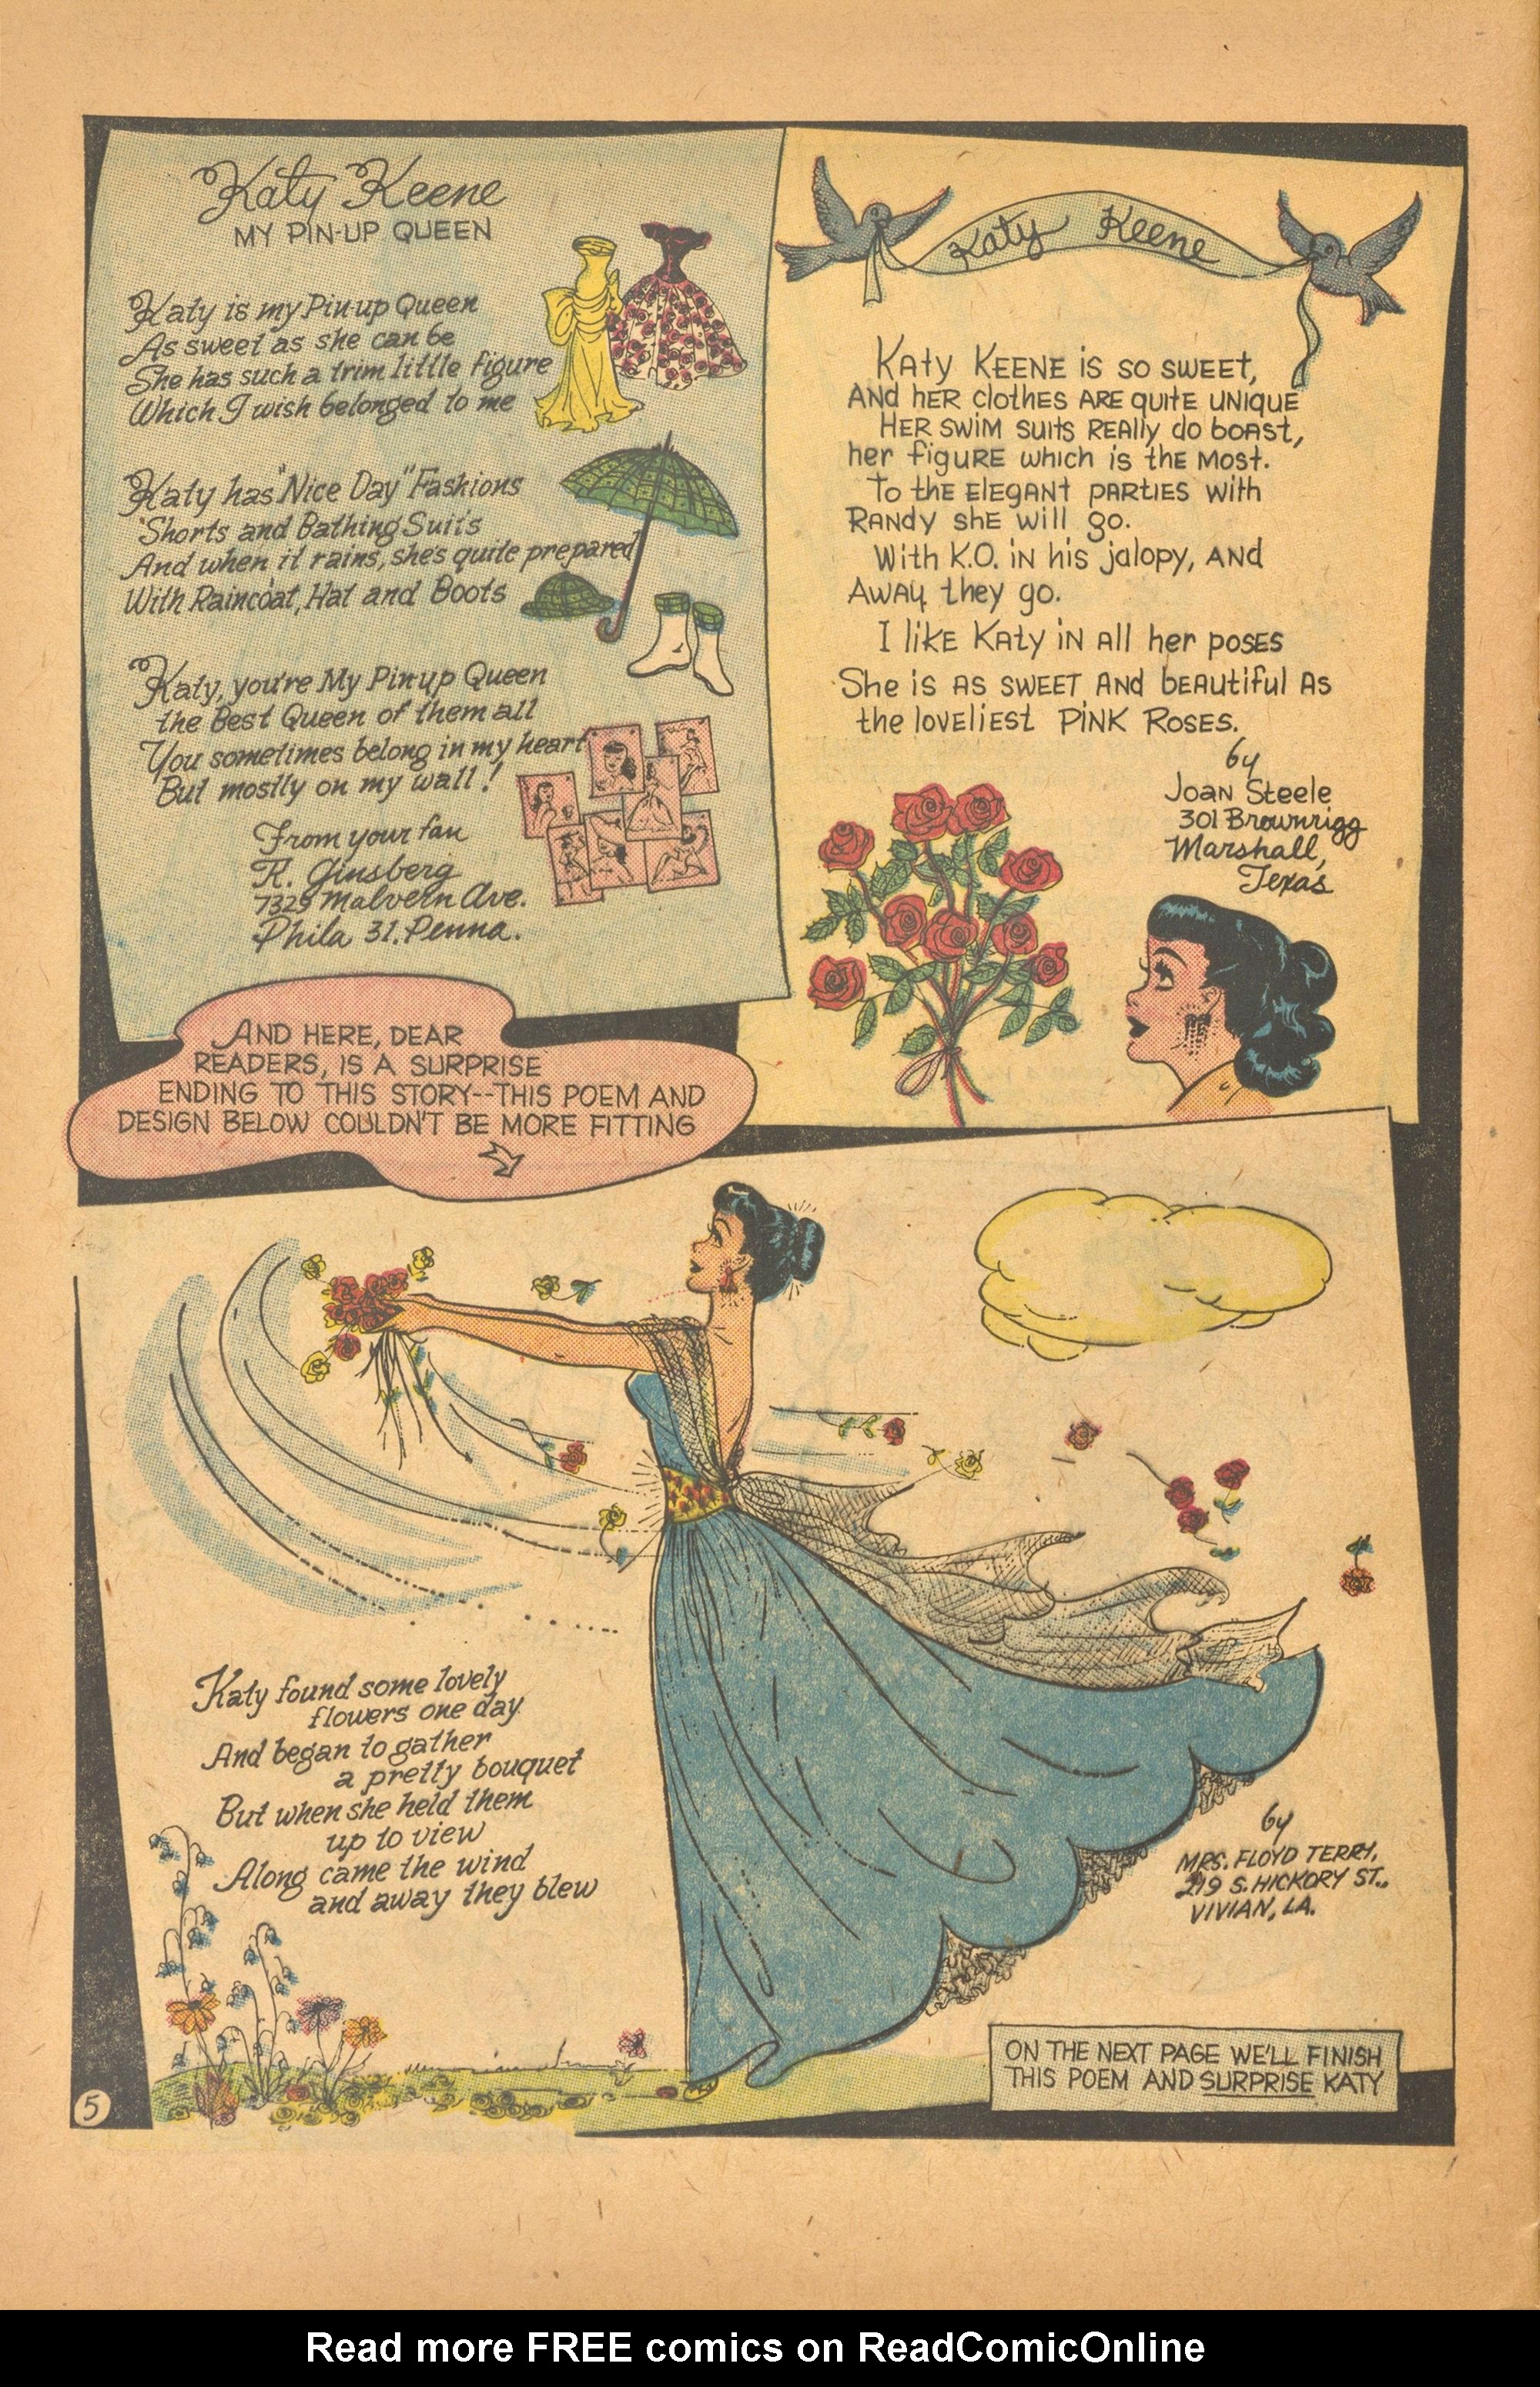 Katy Keene
MY PIN-UP QUEEN
Katy is my Pin-up Queen
As sweet as she can be
She has such a trim little figure
Which I wish belonged to me
Katy has "Nice Day" Fashions
Shorts and Bathing Suits
And when it rains, she's quite prepared
With Raincoat, Hat and Boots
Katy, you're My Pinup Queen
the Best Queen of them all
You sometimes belong in my heart
But mostly on my wall!
From your fan
R. Ginsberg
7329 Malvern Ave.
Phila 31, Penna.
Katy Keene
KATY KEENE IS SO SWEET,
AND HER CLOTHES ARE QUITE UNIQUE
HER SWIM SUITS REALLY DO BOAST,
her figURE which is the MOST.
To the ELEGANT PARTIES With
RANDY She Will go.
With K.O. in his jalopy, AND
AWAY they go.
I like KATY IN All her POSES
She is AS SWEET AND bEAUtiful AS
the loveliEST PINK ROSES.
by
JOAN Steele
301 Brownrigg
Marshall,
Texas
AND HERE, DEAR
READERS, IS A SURPRISE
ENDING TO THIS STORY--THIS POEM AND
DESIGN BELOW COULDN'T BE MORE FITTING
Katy found some lovely
flowers one day
And began to gather
a pretty bouquet
But when she held them
up to view
Along came the wind
and away they blew
by
MRS. FLOYD TERRY,
219 S. HICKORY ST.,
VIVIAN, LA.
ON THE NEXT PAGE WE'LL FINISH
THIS POEM AND SURPRISE KATY
5
Read more FREE comics on ReadComicOnline